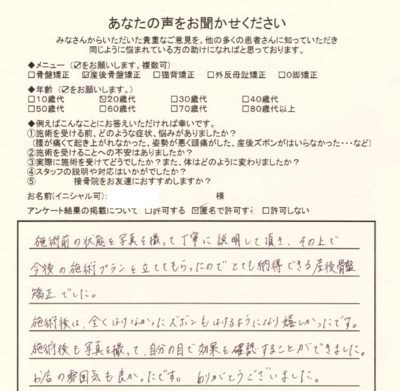 あなたの声をお聞かせください
みなさんからいただいた貴重なご意見を、他の多くの患者さんに知っていただき
同じように悩まれている方の助けになればと思っております。
◆メニュー（☑をお願いします。複数可）
□骨盤矯正 ☑産後骨盤矯正 □猫背矯正 □外反母趾矯正 □O脚矯正
◆年齢（☑をお願いします。）
□10歳代 ☑20歳代 □30歳代 □40歳代
□50歳代 □60歳代 □70歳代 □80歳代以上
◆例えばこんなことにお答えいただければ幸いです。
①施術を受ける前、どのような症状、悩みがありましたか？
（腰が痛くて起き上がれなかった、姿勢が悪く頭痛がした、産後ズボンがはいらなかった・・・など）
②施術を受けることへの不安はありましたか？
③実際に施術を受けてどうでしたか？また、体はどのように変わりましたか？
④スタッフの説明や対応はいかがでしたか？
⑤ 接骨院をお友達におすすめしますか？
お名前(イニシャル可): 様
アンケート結果の掲載について □許可する ☑匿名で許可する □許可しない
施術前の状態を写真を撮って丁寧に説明して頂き、その上で
今後の施術プランを立ててもらったのでとても納得できる産後骨盤
矯正でした。
施術後は、全くはけなかったズボンもはけるようになり嬉しかったです。
施術後も写真を撮って、自分の目で効果を確認することができました。
お店の雰囲気も良かったです。ありがとうございました。